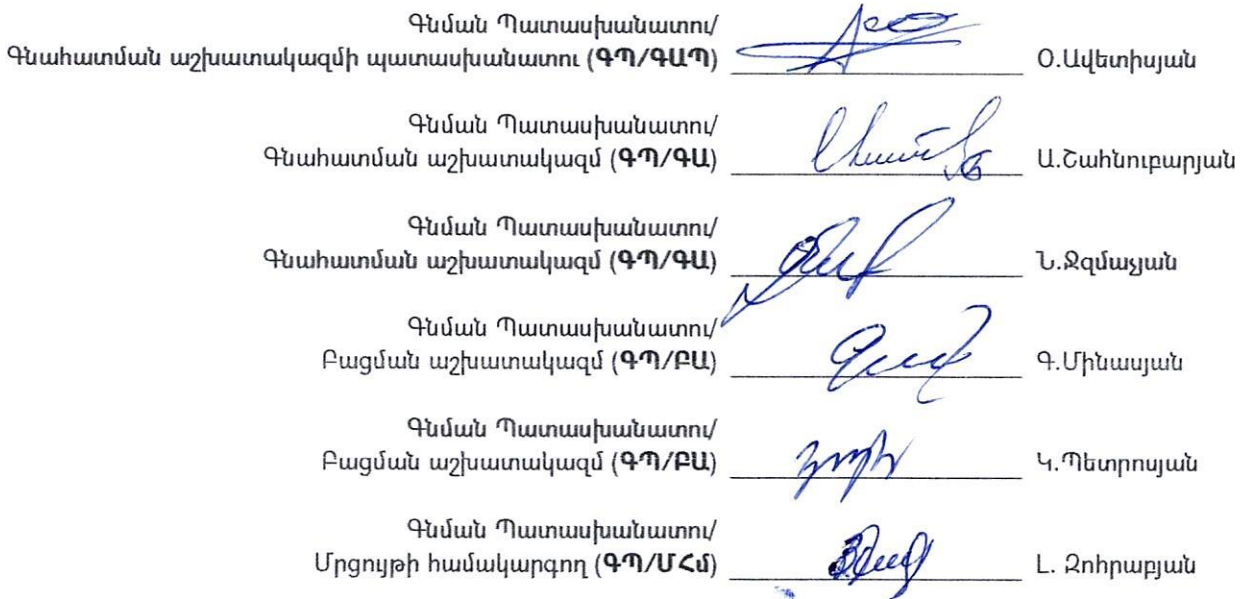 Գնման Պատասխանատու/
Գնահատման աշխատակազմի պատասխանատու (ԳՊ/ԳԱՊ) Օ.Ավետիսյան
Գնման Պատասխանատու/
Գնահատման աշխատակազմ (ԳՊ/ԳԱ) Ա.Շահնուբարյան
Գնման Պատասխանատու/
Գնահատման աշխատակազմ (ԳՊ/ԳԱ) Ն.Ջզմաչյան
Գնման Պատասխանատու/
Բացման աշխատակազմ (ԳՊ/ԲԱ) Գ.Մինասյան
Գնման Պատասխանատու/
Բացման աշխատակազմ (ԳՊ/ԲԱ) Կ.Պետրոսյան
Գնման Պատասխանատու/
Մրցույթի համակարգող (ԳՊ/ՄՀմ) Լ. Զոհրաբյան